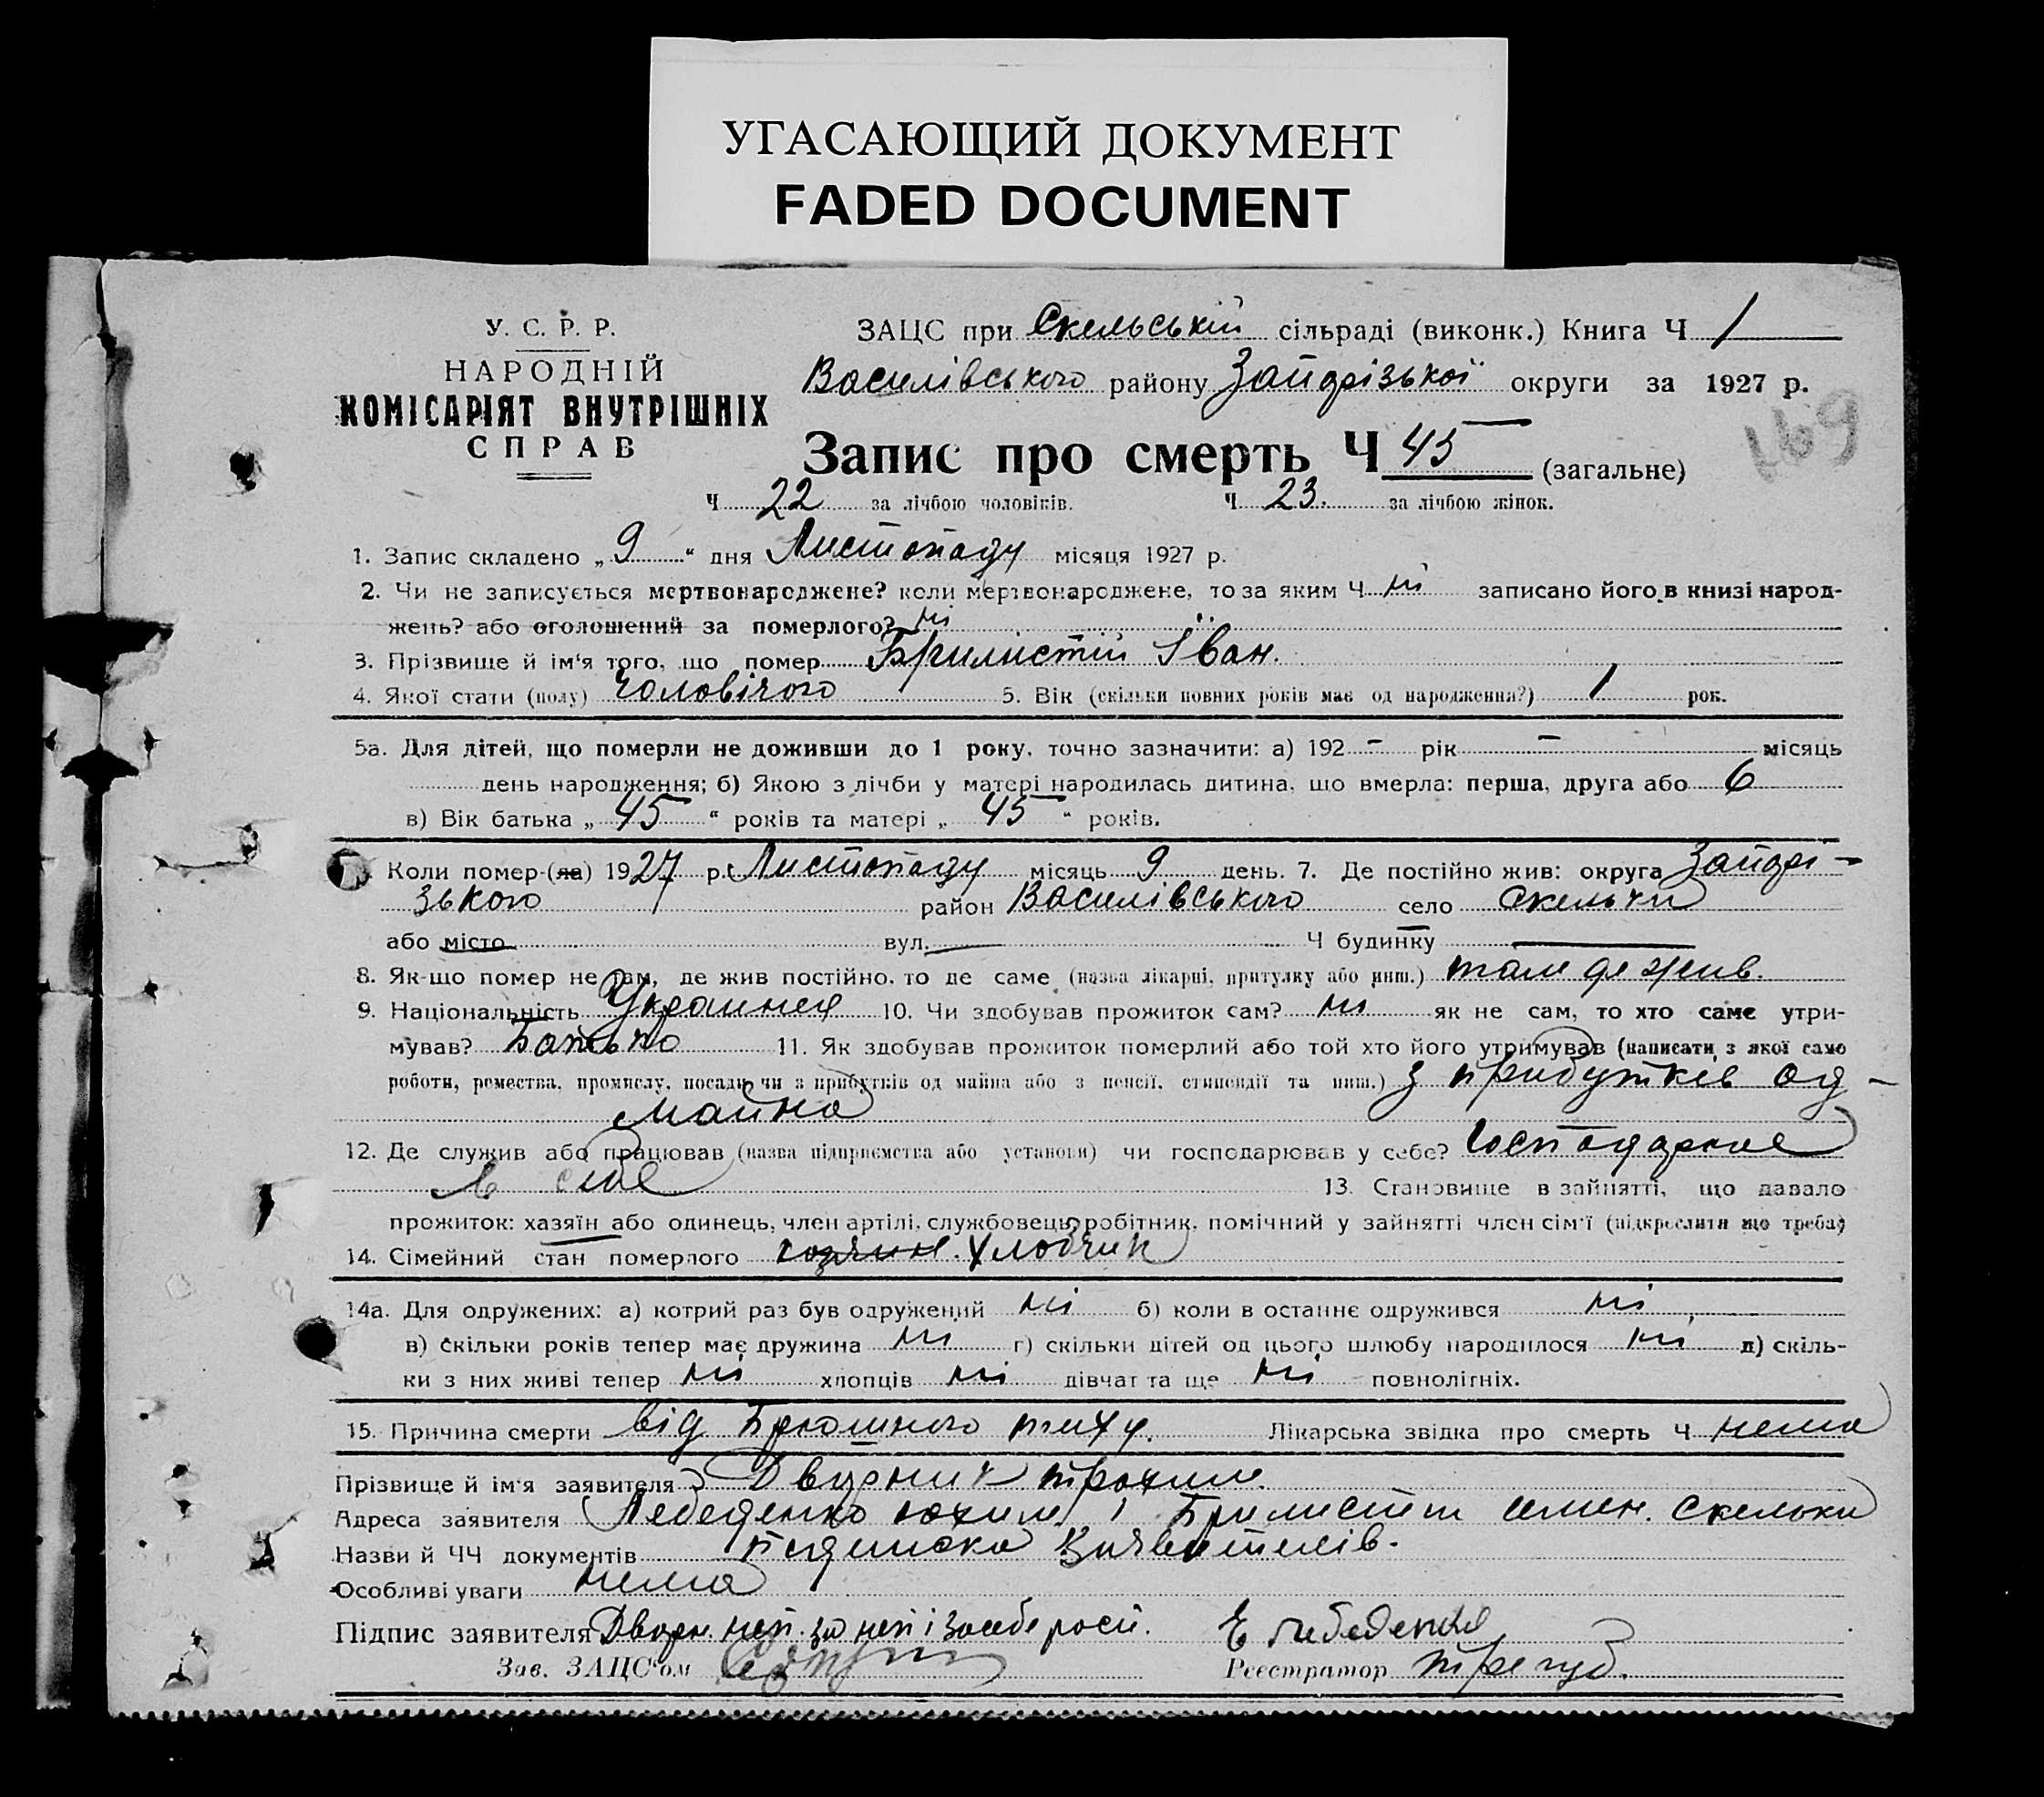 УГАСАЮЩИЙ ДОКУМЕНТ
FADED DOCUMENT
У. С. Р. Р.
НАРОДНІЙ
КОМІСАРІЯТ ВНУТРІШНІХ
СПРАВ
ЗАЦС при Скельській сільраді (виконк.) Книга Ч 1
Василівського району Запорізької округи за 1927 р.
169
Запис про смерть Ч 45 (загальне)
Ч 22 за лічбою чоловіків. Ч 23. за лічбою жінок.
1. Запис складено „ 9 “ дня Листопаду місяця 1927 р.
2. Чи не записується мертвонароджене? коли мертвонароджене, то за яким Ч ні записано його в книзі народ-
жень? або оголошений за померлого? ні
3. Прізвище й ім'я того, що помер Брилистій Іван.
4. Якої стати (полу) чоловічого 5. Вік (скільки повних років має од народження?) 1 рок.
5а. Для дітей, що померли не доживши до 1 року, точно зазначити: а) 192 – рік – місяць
день народження; б) Якою з лічби у матері народилась дитина, що вмерла: перша, друга або 6
в) Вік батька „ 45 “ років та матері „ 45 “ років.
Коли помер-(ла) 1927 р. Листопаду місяць 9 день. 7. Де постійно жив: округа Запорі-
зького район Василівського село Скельки
або місто вул. Ч будинку
8. Як-що помер не там, де жив постійно, то де саме (назва лікарні, притулку або инш.) там де жив.
9. Національність 10. Чи здобував прожиток сам? ні як не сам, то хто саме утри-
мував? Батько 11. Як здобував прожиток померлий або той хто його утримував (написати, з якої само
роботи, ремества, промислу, посади чи з прибутків од майна або з пенсії, стипендії та инш.) з прибутків од –
майна
12. Де служив або працював (назва підприємства або установи) чи господарював у себе?
в себе 13. Становище в зайнятті, що давало
прожиток: хазяїн або одинець, член артілі, службовець, робітник, помічний у зайнятті член сім'ї (підкреслити що треба)
14. Сімейний стан померлого хлобчик
14а. Для одружених: а) котрий раз був одружений ні б) коли в останнє одружився ні
в) скільки років тепер має дружина ні г) скільки дітей од цього шлюбу народилося ні д) скіль-
ки з них живі тепер ні хлопців ні дівчат та ще ні повнолітніх.
15. Причина смерти від Брюшного тиху. Лікарська звідка про смерть Ч нема
Прізвище й ім'я заявителя Дворник трохим.
Адреса заявителя Лебеденко юхим і Брилистий семен. Скельки
Назви й ЧЧ документів заявителів.
Особливі уваги нема
Підпис заявителя Дворн. неп. за неп і засебе росп. Е Лебеденко
Зав. ЗАЦС'ом Реєстратор